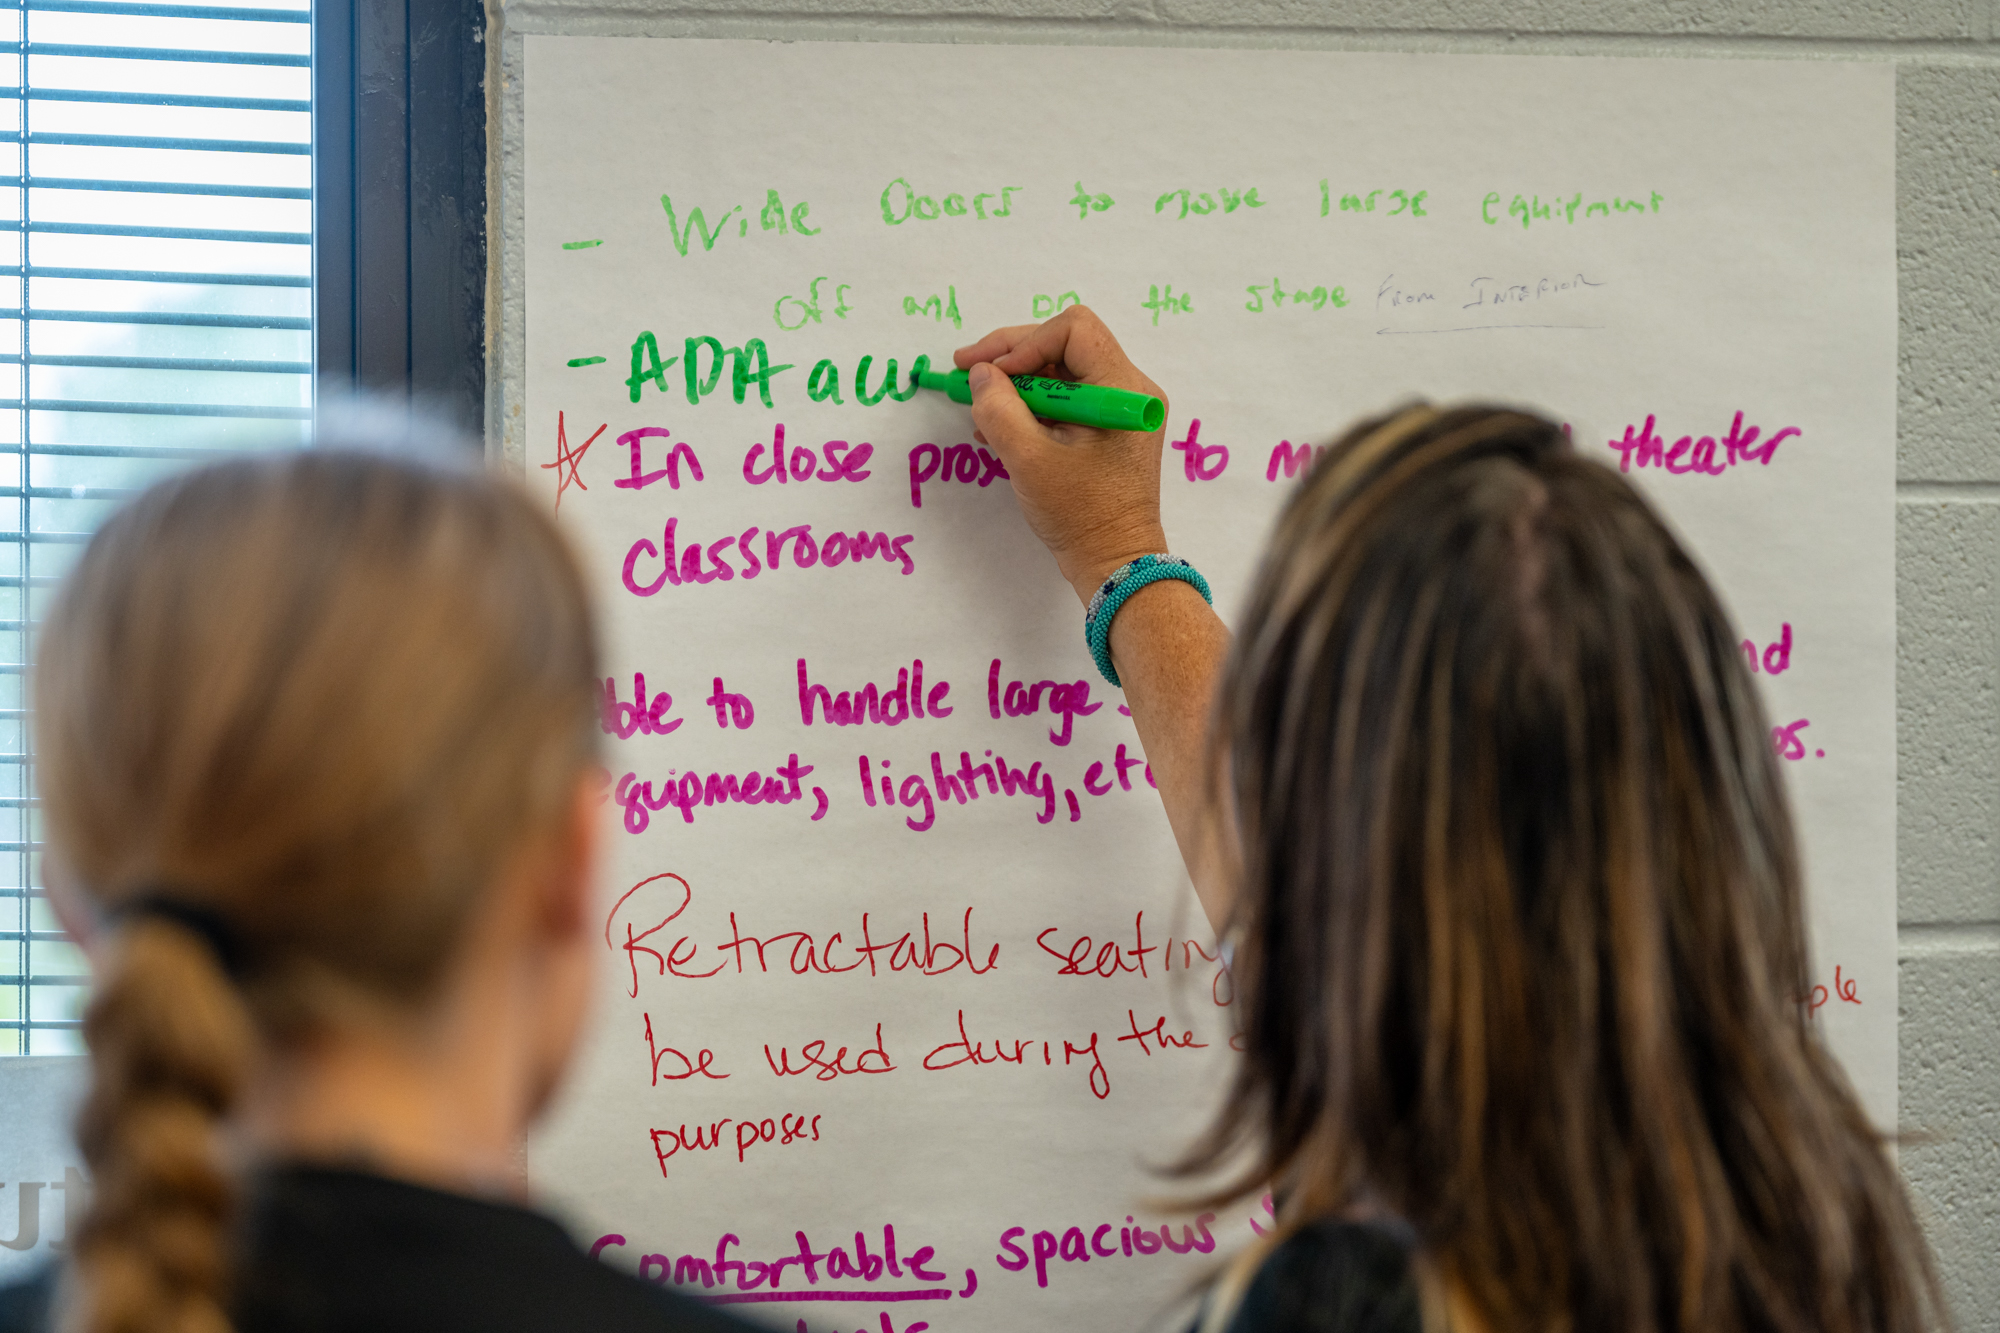 - Wide Doors to move large equipment
off and on the stage From Interior
- ADA aw
In close to theater
classrooms
to handle large
equipment, lighting, etc
Retractable seating
be used during the
purposes
Comfortable, spacious